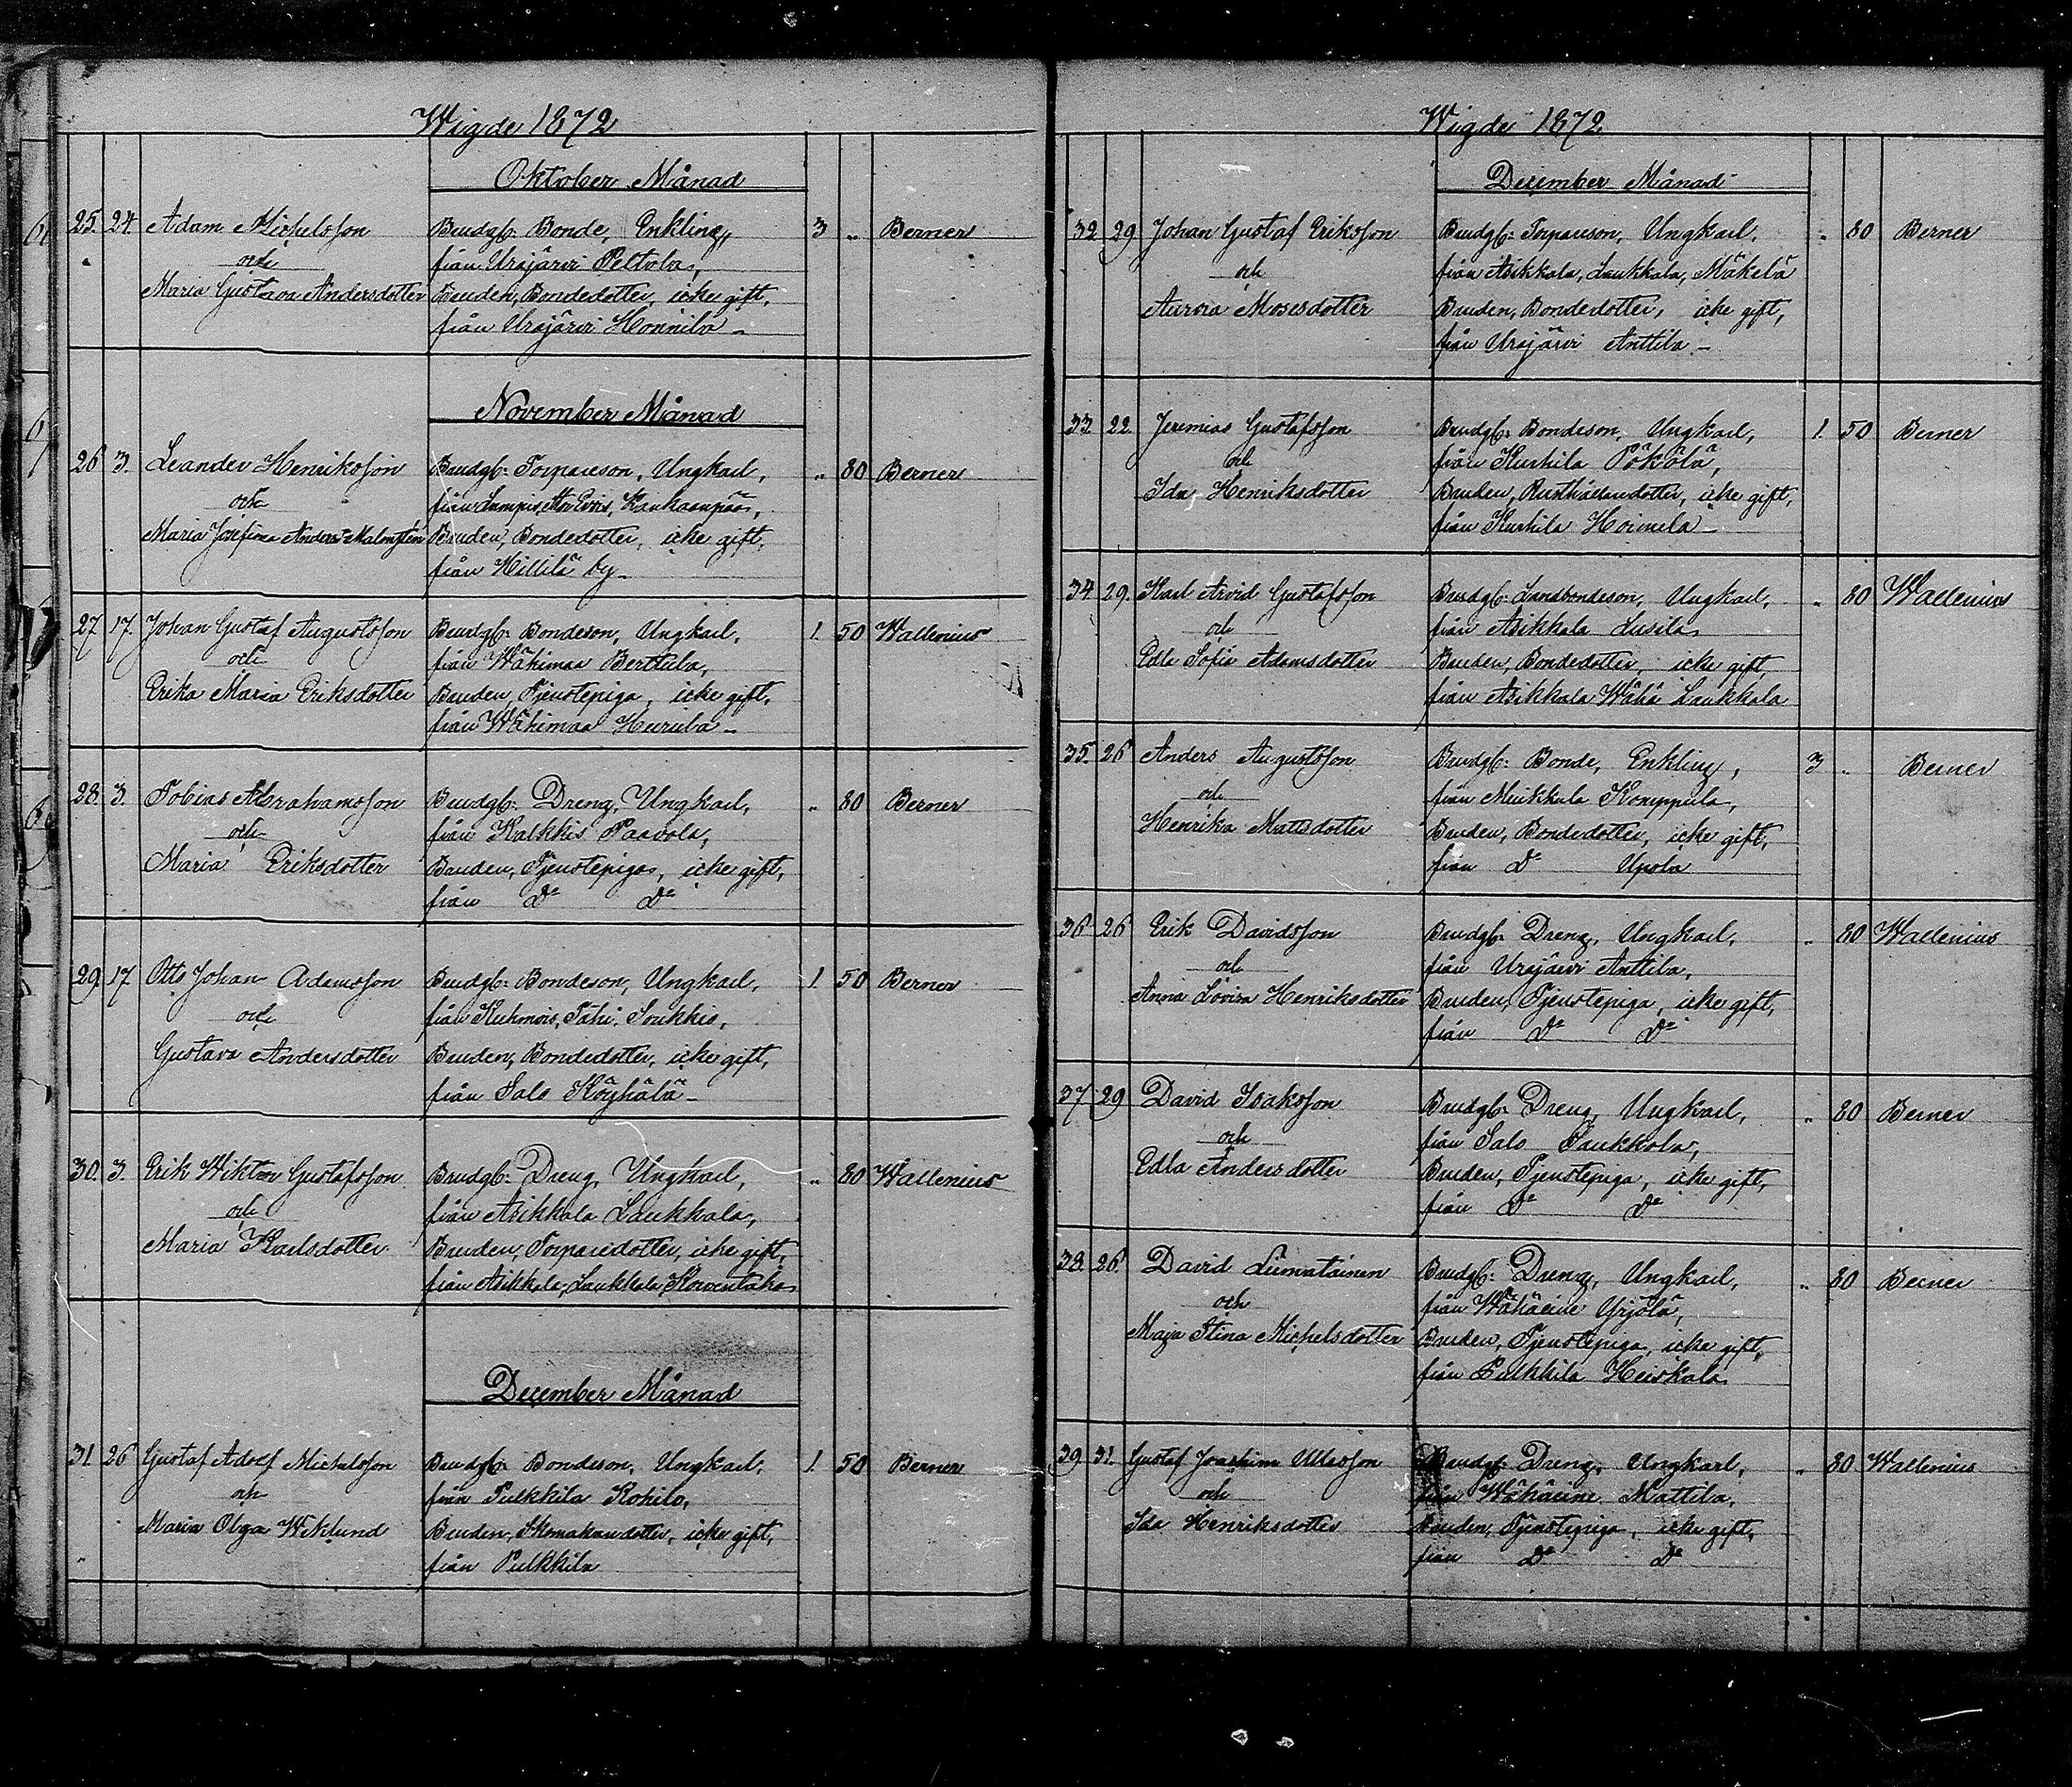 Wigde 1872
Oktober Månad
25. 24. Adam Michelsson Brudg: Bonde, Enkling, 3 „ Berner
och från Urajärvi Peltola,
Maria Gustava Andersdotter Bruden, Bondedotter, icke gift,
från Urajärvi Honnila
November Månad
26 3. Leander Henriksson Brudg: Torpareson, Ungkarl, „ 80 Berner
och från Lampis,
Maria Josefina Anders Malmsten Bruden, Bondedotter, icke gift,
från Hillilä by
27 17. Johan Gustaf Augustsson Brudg: Bondeson, Ungkarl, 1. 50 Wallenius
och från Wähimaa Berttula,
Erika Maria Eriksdotter Bruden, Tjenstepiga, icke gift,
från Wähimaa Hurula
28. 3. Tobias Abrahamsson Brudg: Dreng, Ungkarl, „ 80 Berner
och från Kalkkis Paavola,
Maria Eriksdotter Bruden, Tjenstepiga, icke gift,
från Do Do
29 17 Otto Johan Adamsson Brudg: Bondeson, Ungkarl, 1. 50 Berner
och från Kuhmois, Pähi, Soukkis,
Gustava Andersdotter Bruden, Bondedotter, icke gift,
från Salo Köyhälä
30. 3. Erik Wiktor Gustafsson Brudg: Dreng, Ungkarl, „ 80 Wallenius
och från Asikkala Laukkala,
Maria Karlsdotter Bruden, Torparedotter, icke gift,
från Asikkala, Laukkala, Korventaka
December Månad
31. 26 Gustaf Adolf Michelsson Brudg: Bondeson, Ungkarl, 1. 50 Berner
och från Pulkkila Kohilo,
Maria Olga Weklund Bruden, Skomakaredotter, icke gift,
från Pulkkila
Wigde 1872.
December Månad
32 29 Johan Gustaf Eriksson Brudg: Torpareson, Ungkarl, „ 80 Berner
och från Asikkala, Laukkala, Mäkelä
Aurora Mosesdotter Bruden, Bondedotter, icke gift,
från Urajärvi Anttila
33. 22. Jeremias Gustafsson Brudg: Bondeson, Ungkarl, 1. 50 Berner
och från Kurhila Pökölä,
Ida Henriksdotter Bruden, Rusthållaredotter, icke gift,
från Kurhila Hoimela
34. 29. Karl Arvid Gustafsson Brudg: Landbondeson, Ungkarl, „ 80 Wallenius
och från Asikkala Lusila
Edla Sofia Adamsdotter Bruden, Bondedotter, icke gift,
från Asikkala Wähä Laukkala
35. 26 Anders Augustsson Brudg: Bonde, Enkling, 3 „ Berner
och från Muikkula Komppula,
Henrika Mattsdotter Bruden, Bondedotter, icke gift,
från Do Upola
36 26 Erik Davidsson Brudg: Dreng, Ungkarl, „ 80 Wallenius
och från Urajärvi Anttila,
Anna Lovisa Henriksdotter Bruden, Tjenstepiga, icke gift,
från Do Do
37 29 David Isaksson Brudg: Dreng, Ungkarl, „ 80 Berner
och från Salo Paukkola,
Edla Andersdotter Bruden, Tjenstepiga, icke gift,
från Do Do
38. 26. David Liimatainen Brudg: Dreng, Ungkarl, „ 80 Berner
och från Wähäeine Yrjölä,
Maja Stina Michelsdotter Bruden, Tjenstepiga, icke gift,
från Pulkkila Heiskala
39 31. Gustaf Joachim Ullesson Brudg: Dreng, Ungkarl, „ 80 Wallenius
och från Wähäeine Mattila,
Ida Henriksdotter Bruden, Tjenstepiga, icke gift,
från Do Do